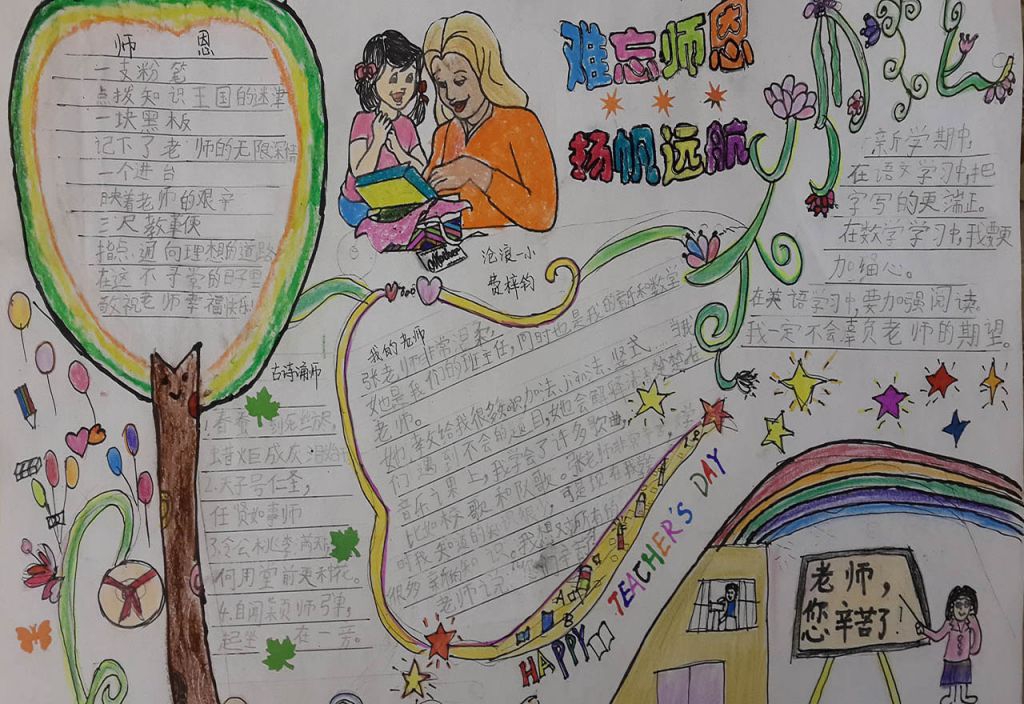 师恩
一支粉笔
点拨知识王国的迷津
一块黑板
记下了老师的无限深情
一个进台
映着老师的艰辛
三尺教事使
指点通向理想的道路
在这不寻常的日子里
敬祝老师幸福快乐!
难忘师恩
扬帆远航
沧浪一小
费梓钧
新学期中,
在语文学习中,把
字写的更端正。
在数学学习中,我要更
加细心。
在英语学习中,要加强阅读。
我一定不会辜负老师的期望。
古诗诵师
1.春蚕到死丝
蜡炬成灰
2.天子号仁圣,
任贤如事师
3.令公桃李满天
何用堂前更种花。
4.自闻颖师弹,
起坐在一旁。
我的老师
张老师非常温柔,
她是我们的班主任,同时也是我的音乐和数学
老师。
她教给我很多知识,加法、减法、竖式……当我
们遇到不会的题目,她会
音乐之果上,我学会了许多歌曲,
校歌和队歌。张老师非常
我知道的知识很少,可是现在
很多新的知识。我想对所有的
老师
HAPPY TEACHER'S DAY
老师,
您辛苦了!